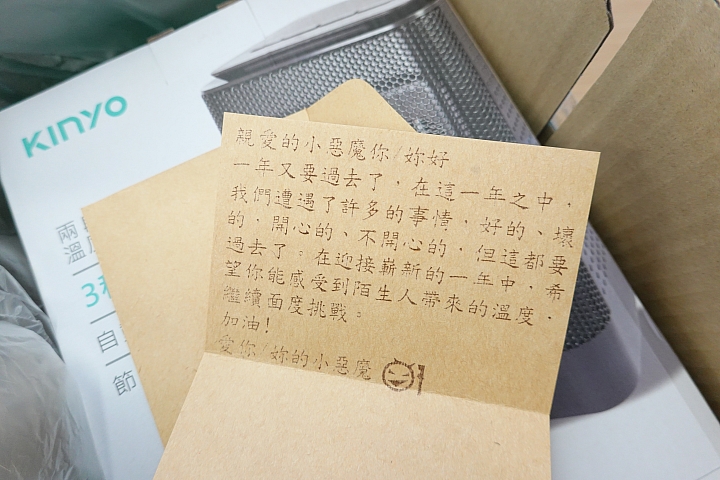 KINYO
兩
溫
3
自
節
親愛的小惡魔你/妳好
一年又要過去了，在這一年之中，
我們遭遇了許多的事情，好的、壞
的，開心的、不開心的，但這都要
過去了。在迎接嶄新的一年中，希
望你能感受到陌生人帶來的溫度，
繼續面度挑戰。
加油!
愛你/妳的小惡魔